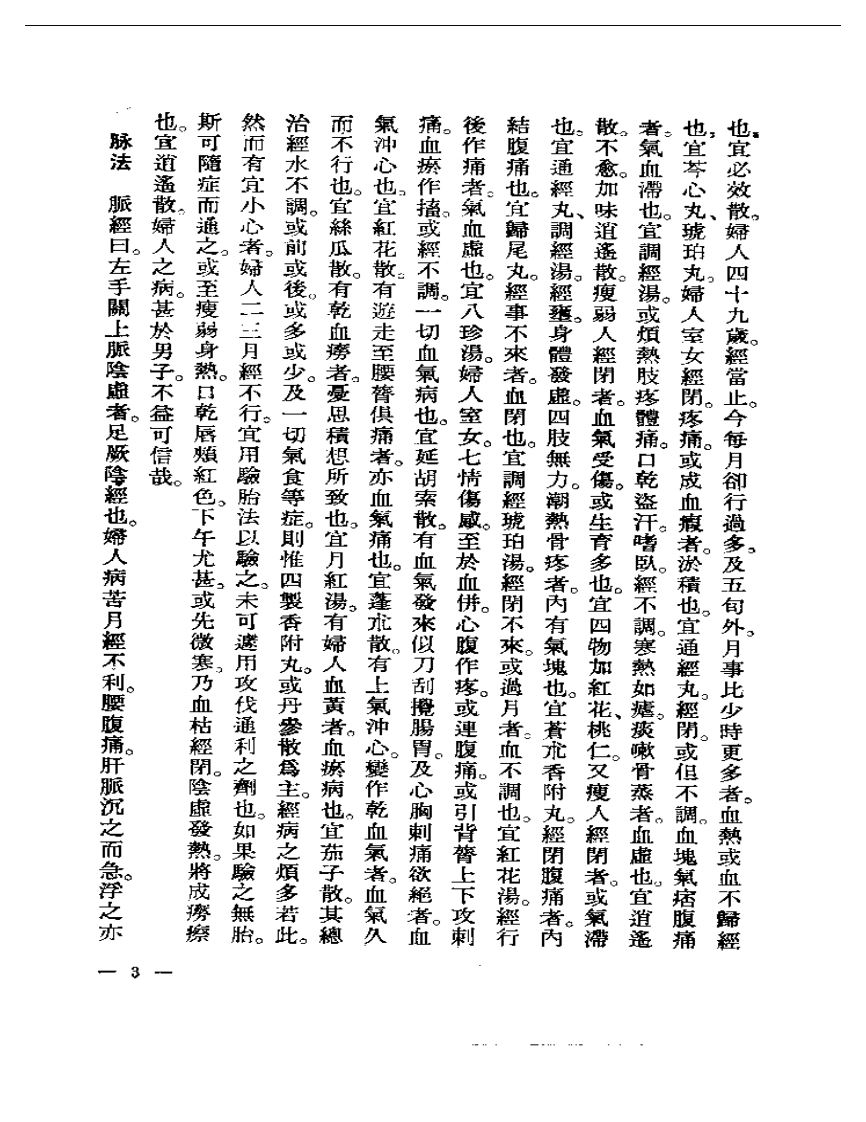 也。宜必效散。婦人四十九歲。經當止。今每月卻行過多。及五旬外。月事比少時更多者。血熱或血不歸經
也。宜芩心丸、琥珀丸。婦人室女經閉。疼痛。或成血瘕者。淤積也。宜通經丸。經閉。或但不調。血塊氣痞腹痛
者。氣血滯也。宜調經湯。或煩熱肢疼體痛。口乾盜汗。嗜臥。經不調。寒熱如瘧。痰嗽骨蒸者。血虛也。宜逍遙
散。不愈。加味逍遙散。瘦弱人經閉者。血氣受傷。或生育多也。宜四物加紅花、桃仁。又瘦人經閉者。或氣滯
也。宜通經丸、調經湯。經壅。身體發虛。四肢無力。潮熱骨疼者。內有氣塊也。宜蒼朮香附丸。經閉腹痛者。內
結腹痛也。宜歸尾丸。經事不來者。血閉也。宜調經琥珀湯。經閉不來。或過月者。血不調也。宜紅花湯。經行
後作痛者。氣血虛也。宜八珍湯。婦人室女。七情傷感。至於血併。心腹作疼。或連腹痛。或引背膂上下攻刺
痛。血瘀作搐。或經不調。一切血氣病也。宜延胡索散。有血氣發來似刀刮攪腸胃。及心胸刺痛欲絕者。血
氣沖心也。宜紅花散。有遊走至腰膂俱痛者。亦血氣痛也。宜蓬朮散。有上氣沖心。變作乾血氣者。血氣久
而不行也。宜絲瓜散。有乾血癆者。憂思積想所致也。宜月紅湯。有婦人血黃者。血瘀病也。宜茄子散。其總
治經水不調。或前或後。或多或少。及一切氣食等症。則惟四製香附丸。或丹參散爲主。經病之煩多若此。
然而有宜小心者。婦人二三月經不行。宜用驗胎法以驗之。未可遽用攻伐通利之劑也。如果驗之無胎。
斯可隨症而通之。或至瘦弱身熱。口乾唇頰紅色。下午尤甚。或先微寒。乃血枯經閉。陰虛發熱。將成癆瘵
也。宜逍遙散。婦人之病。甚於男子。不益可信哉。
脉法　脈經曰。左手關上脈陰虛者。足厥陰經也。婦人病苦月經不利。腰腹痛。肝脈沉之而急。浮之亦
— 3 —